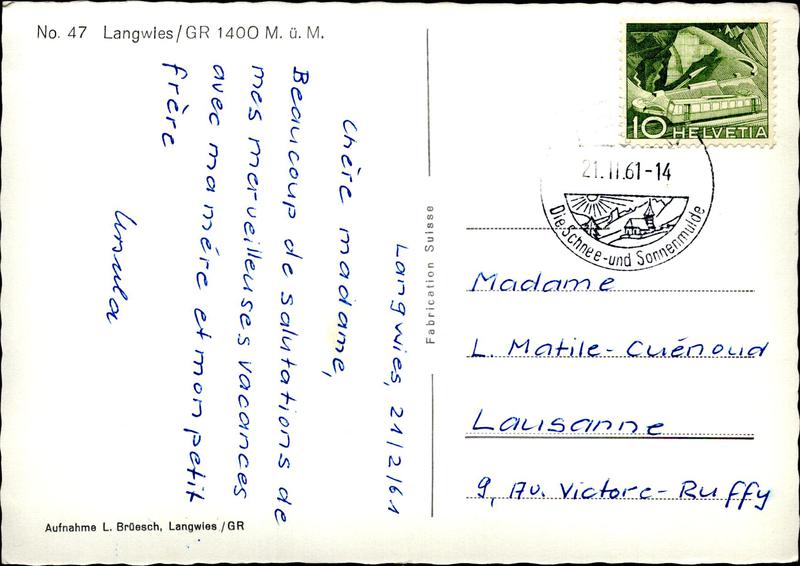 No. 47 Langwies/GR 1400 M. ü. M.
Langwies, 21/2/61
Chère madame,
Beaucoup de salutations de
mes merveilleuses vacances
avec ma mére et mon petit
frère
Ursula
Aufnahme L. Brüesch, Langwies/GR
Fabrication Suisse
10 HELVETIA
21.II.61-14
Die Schnee-und Sonnenmulde
Madame
L. Matile-Cuénoud
Lausanne
9, Av. Victore-Ruffy